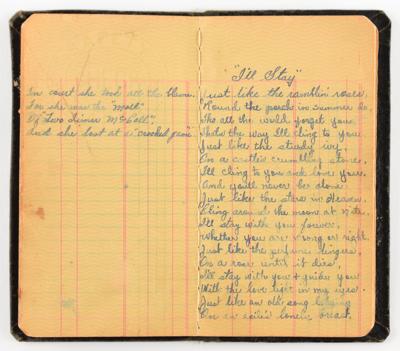 In court she took all the blame.
For she was the "Moll"
Of "Two Timer McCall",
And she lost at a "crooked game".
"I'll Stay"
Just like the ramblin' roses,
'Round the porch in summer do,
Tho all the world forget you
That's the way I'll cling to you
Just like the sturdy ivy,
On a castle's crumbling stones,
I'll cling to you and love you
And you'll never be alone.
Just like the stars in Heaven,
Cling around the moon at nite,
I'll stay with you forever,
Whether you are wrong or right.
Just like the perfume lingers,
On a rose until it dies,
I'll stay with you & guide you
With the love light in my eyes.
Just like an old song
On an exile's lonely breast.